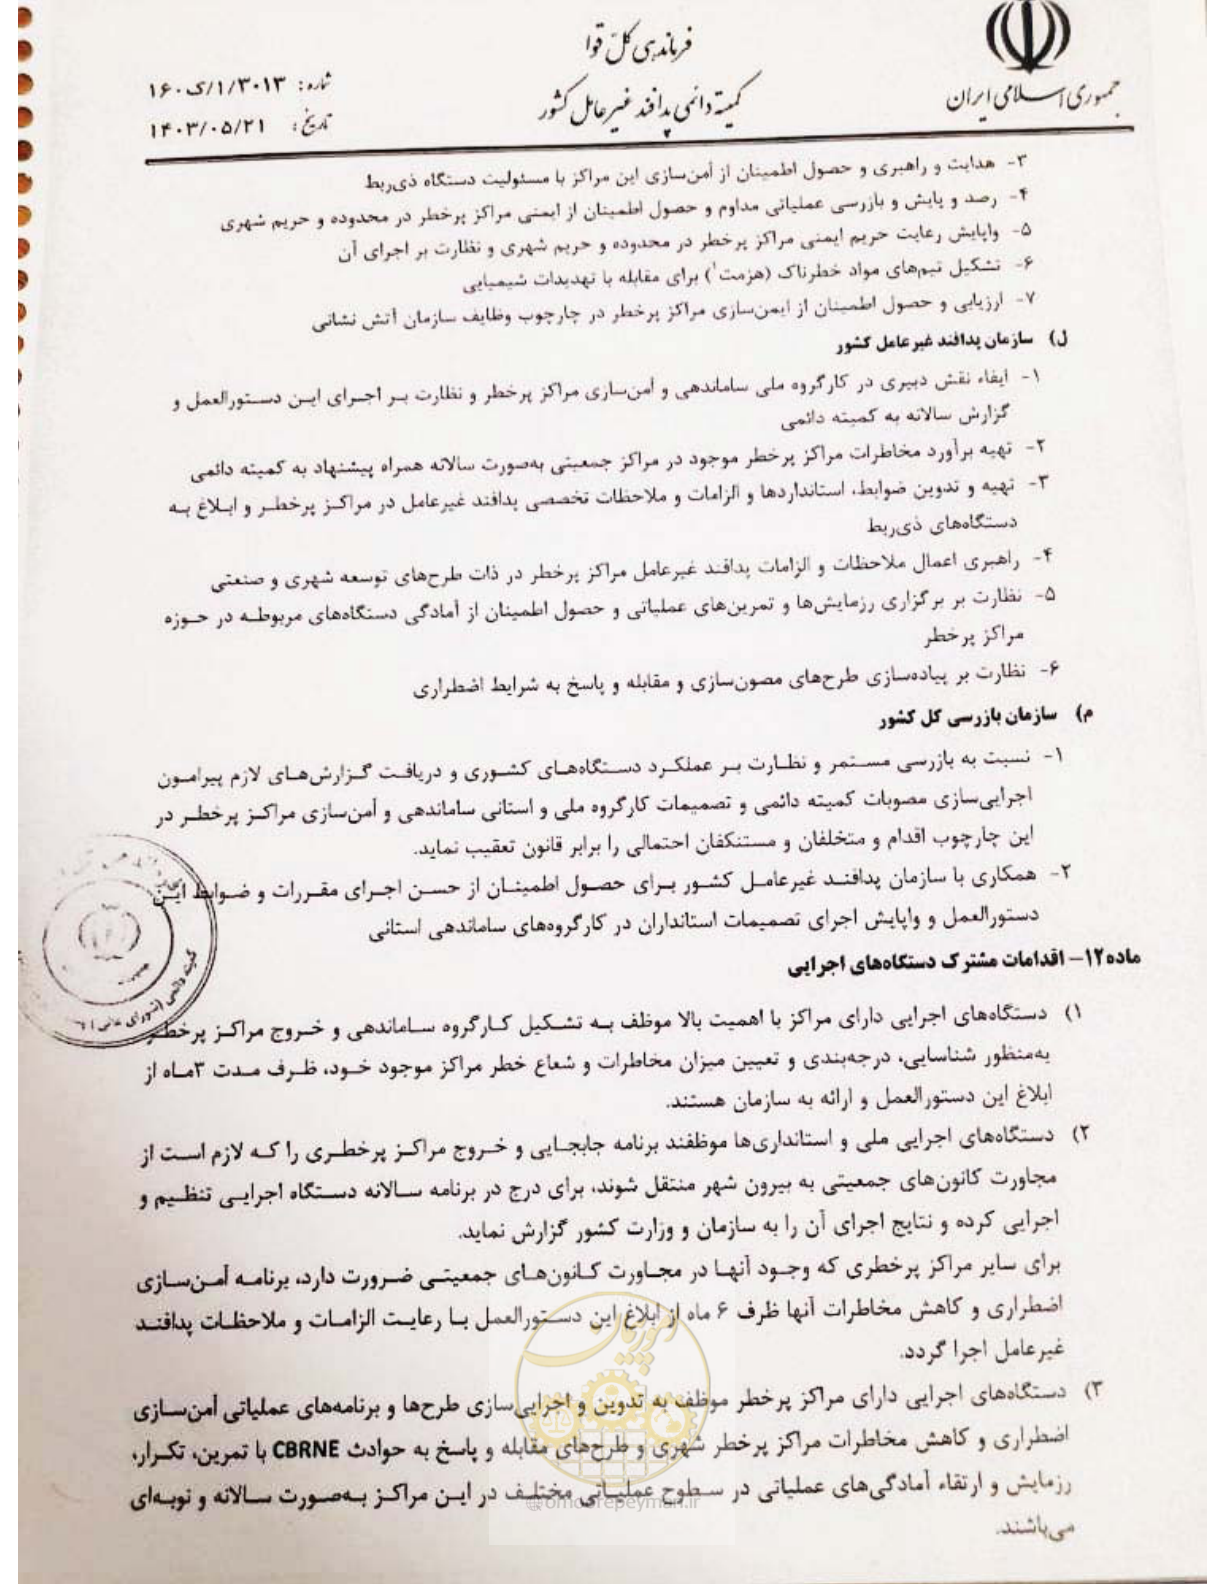 جمهوری اسلامی ایران
فرماندهی کلّ قوا
کمیته دائمی پدافند غیرعامل کشور
شماره: ۱۶۰/ک/۱/۳۰۱۳
تاریخ: ۱۴۰۳/۰۵/۲۱
۳- هدایت و راهبری و حصول اطمینان از اَمن‌سازی این مراکز با مسئولیت دستگاه ذی‌ربط
۴- رصد و پایش و بازرسی عملیاتی مداوم و حصول اطمینان از ایمنی مراکز پرخطر در محدوده و حریم شهری
۵- واپایش رعایت حریم ایمنی مراکز پرخطر در محدوده و حریم شهری و نظارت بر اجرای آن
۶- تشکیل تیم‌های مواد خطرناک (هزمت۱) برای مقابله با تهدیدات شیمیایی
۷- ارزیابی و حصول اطمینان از ایمن‌سازی مراکز پرخطر در چارچوب وظایف سازمان آتش نشانی
ل) سازمان پدافند غیرعامل کشور
۱- ایفاء نقش دبیری در کارگروه ملی ساماندهی و اَمن‌سازی مراکز پرخطر و نظارت بر اجرای این دستورالعمل و
گزارش سالانه به کمیته دائمی
۲- تهیه برآورد مخاطرات مراکز پرخطر موجود در مراکز جمعیتی به‌صورت سالانه همراه پیشنهاد به کمیته دائمی
۳- تهیه و تدوین ضوابط، استانداردها و الزامات و ملاحظات تخصصی پدافند غیرعامل در مراکز پرخطر و ابلاغ به
دستگاه‌های ذی‌ربط
۴- راهبری اعمال ملاحظات و الزامات پدافند غیرعامل مراکز پرخطر در ذات طرح‌های توسعه شهری و صنعتی
۵- نظارت بر برگزاری رزمایش‌ها و تمرین‌های عملیاتی و حصول اطمینان از آمادگی دستگاه‌های مربوطه در حوزه
مراکز پرخطر
۶- نظارت بر پیاده‌سازی طرح‌های مصون‌سازی و مقابله و پاسخ به شرایط اضطراری
م) سازمان بازرسی کل کشور
۱- نسبت به بازرسی مستمر و نظارت بر عملکرد دستگاه‌های کشوری و دریافت گزارش‌های لازم پیرامون
اجرایی‌سازی مصوبات کمیته دائمی و تصمیمات کارگروه ملی و استانی ساماندهی و اَمن‌سازی مراکز پرخطر در
این چارچوب اقدام و متخلفان و مستنکفان احتمالی را برابر قانون تعقیب نماید.
۲- همکاری با سازمان پدافند غیرعامل کشور برای حصول اطمینان از حسن اجرای مقررات و ضوابط این
دستورالعمل و واپایش اجرای تصمیمات استانداران در کارگروه‌های ساماندهی استانی
ماده۱۲- اقدامات مشترک دستگاه‌های اجرایی
۱) دستگاه‌های اجرایی دارای مراکز با اهمیت بالا موظف به تشکیل کارگروه ساماندهی و خروج مراکز پرخطر
به‌منظور شناسایی، درجه‌بندی و تعیین میزان مخاطرات و شعاع خطر مراکز موجود خود، ظرف مدت ۳ماه از
ابلاغ این دستورالعمل و ارائه به سازمان هستند.
۲) دستگاه‌های اجرایی ملی و استانداری‌ها موظفند برنامه جابجایی و خروج مراکز پرخطری را که لازم است از
مجاورت کانون‌های جمعیتی به بیرون شهر منتقل شوند، برای درج در برنامه سالانه دستگاه اجرایی تنظیم و
اجرایی کرده و نتایج اجرای آن را به سازمان و وزارت کشور گزارش نماید.
برای سایر مراکز پرخطری که وجود آنها در مجاورت کانون‌های جمعیتی ضرورت دارد، برنامه اَمن‌سازی
اضطراری و کاهش مخاطرات آنها ظرف ۶ ماه از ابلاغ این دستورالعمل با رعایت الزامات و ملاحظات پدافند
غیرعامل اجرا گردد.
۳) دستگاه‌های اجرایی دارای مراکز پرخطر موظف به تدوین و اجرایی‌سازی طرح‌ها و برنامه‌های عملیاتی اَمن‌سازی
اضطراری و کاهش مخاطرات مراکز پرخطر شهری و طرح‌های مقابله و پاسخ به حوادث CBRNE با تمرین، تکرار،
رزمایش و ارتقاء آمادگی‌های عملیاتی در سطوح عملیاتی مختلف در این مراکز به‌صورت سالانه و نوبه‌ای
می‌باشند.
امور پیمان
@omoorepeyman.ir
کمیته دائمی (شورای عالی)